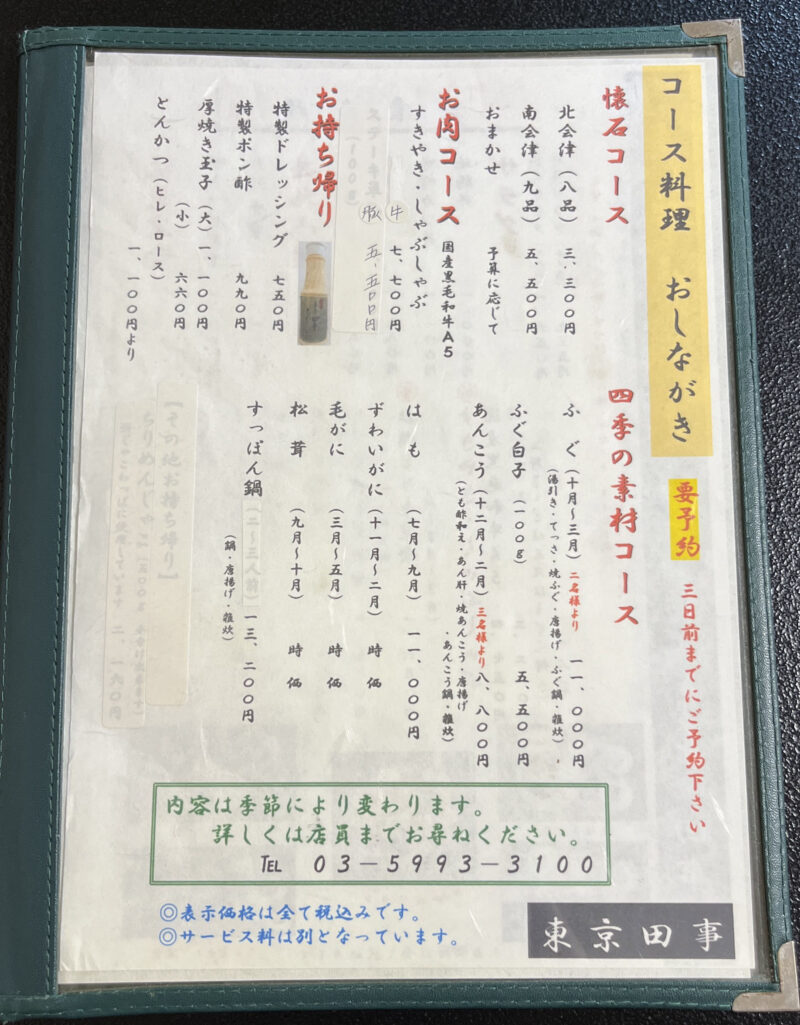 コース料理　おしながき
要予約
三日前までにご予約下さい
懐石コース
北会津（八品）　三、三〇〇円
南会津（九品）　五、五〇〇円
おまかせ　予算に応じて
お肉コース　国産黒毛和牛A5
すきやき・しゃぶしゃぶ
牛　七、七〇〇円
豚　五、五〇〇円
お持ち帰り
特製ドレッシング　七五〇円
特製ポン酢　九九〇円
厚焼き玉子（大）一、一〇〇円
（小）　六六〇円
とんかつ（ヒレ・ロース）
一、一〇〇円より
四季の素材コース
ふぐ（十月～三月）二名様より　一一、〇〇〇円
（湯引き・てっさ・焼ふぐ・唐揚げ・ふぐ鍋・雑炊）
ふぐ白子（一〇〇g）　五、五〇〇円
あんこう（十二月～二月）三名様より　八、八〇〇円
（とも酢和え・あん肝・焼あんこう・唐揚げ
・あんこう鍋・雑炊）
はも（七月～九月）　一一、〇〇〇円
ずわいがに（十一月～二月）　時価
毛がに（三月～五月）　時価
松茸（九月～十月）　時価
すっぽん鍋（二～三人前）一三、二〇〇円
（鍋・唐揚げ・雑炊）
【その他お持ち帰り】
ちりめんじゃこ
内容は季節により変わります。
詳しくは店員までお尋ねください。
TEL　03－5993－3100
◎表示価格は全て税込みです。
◎サービス料は別となっています。
東京田事